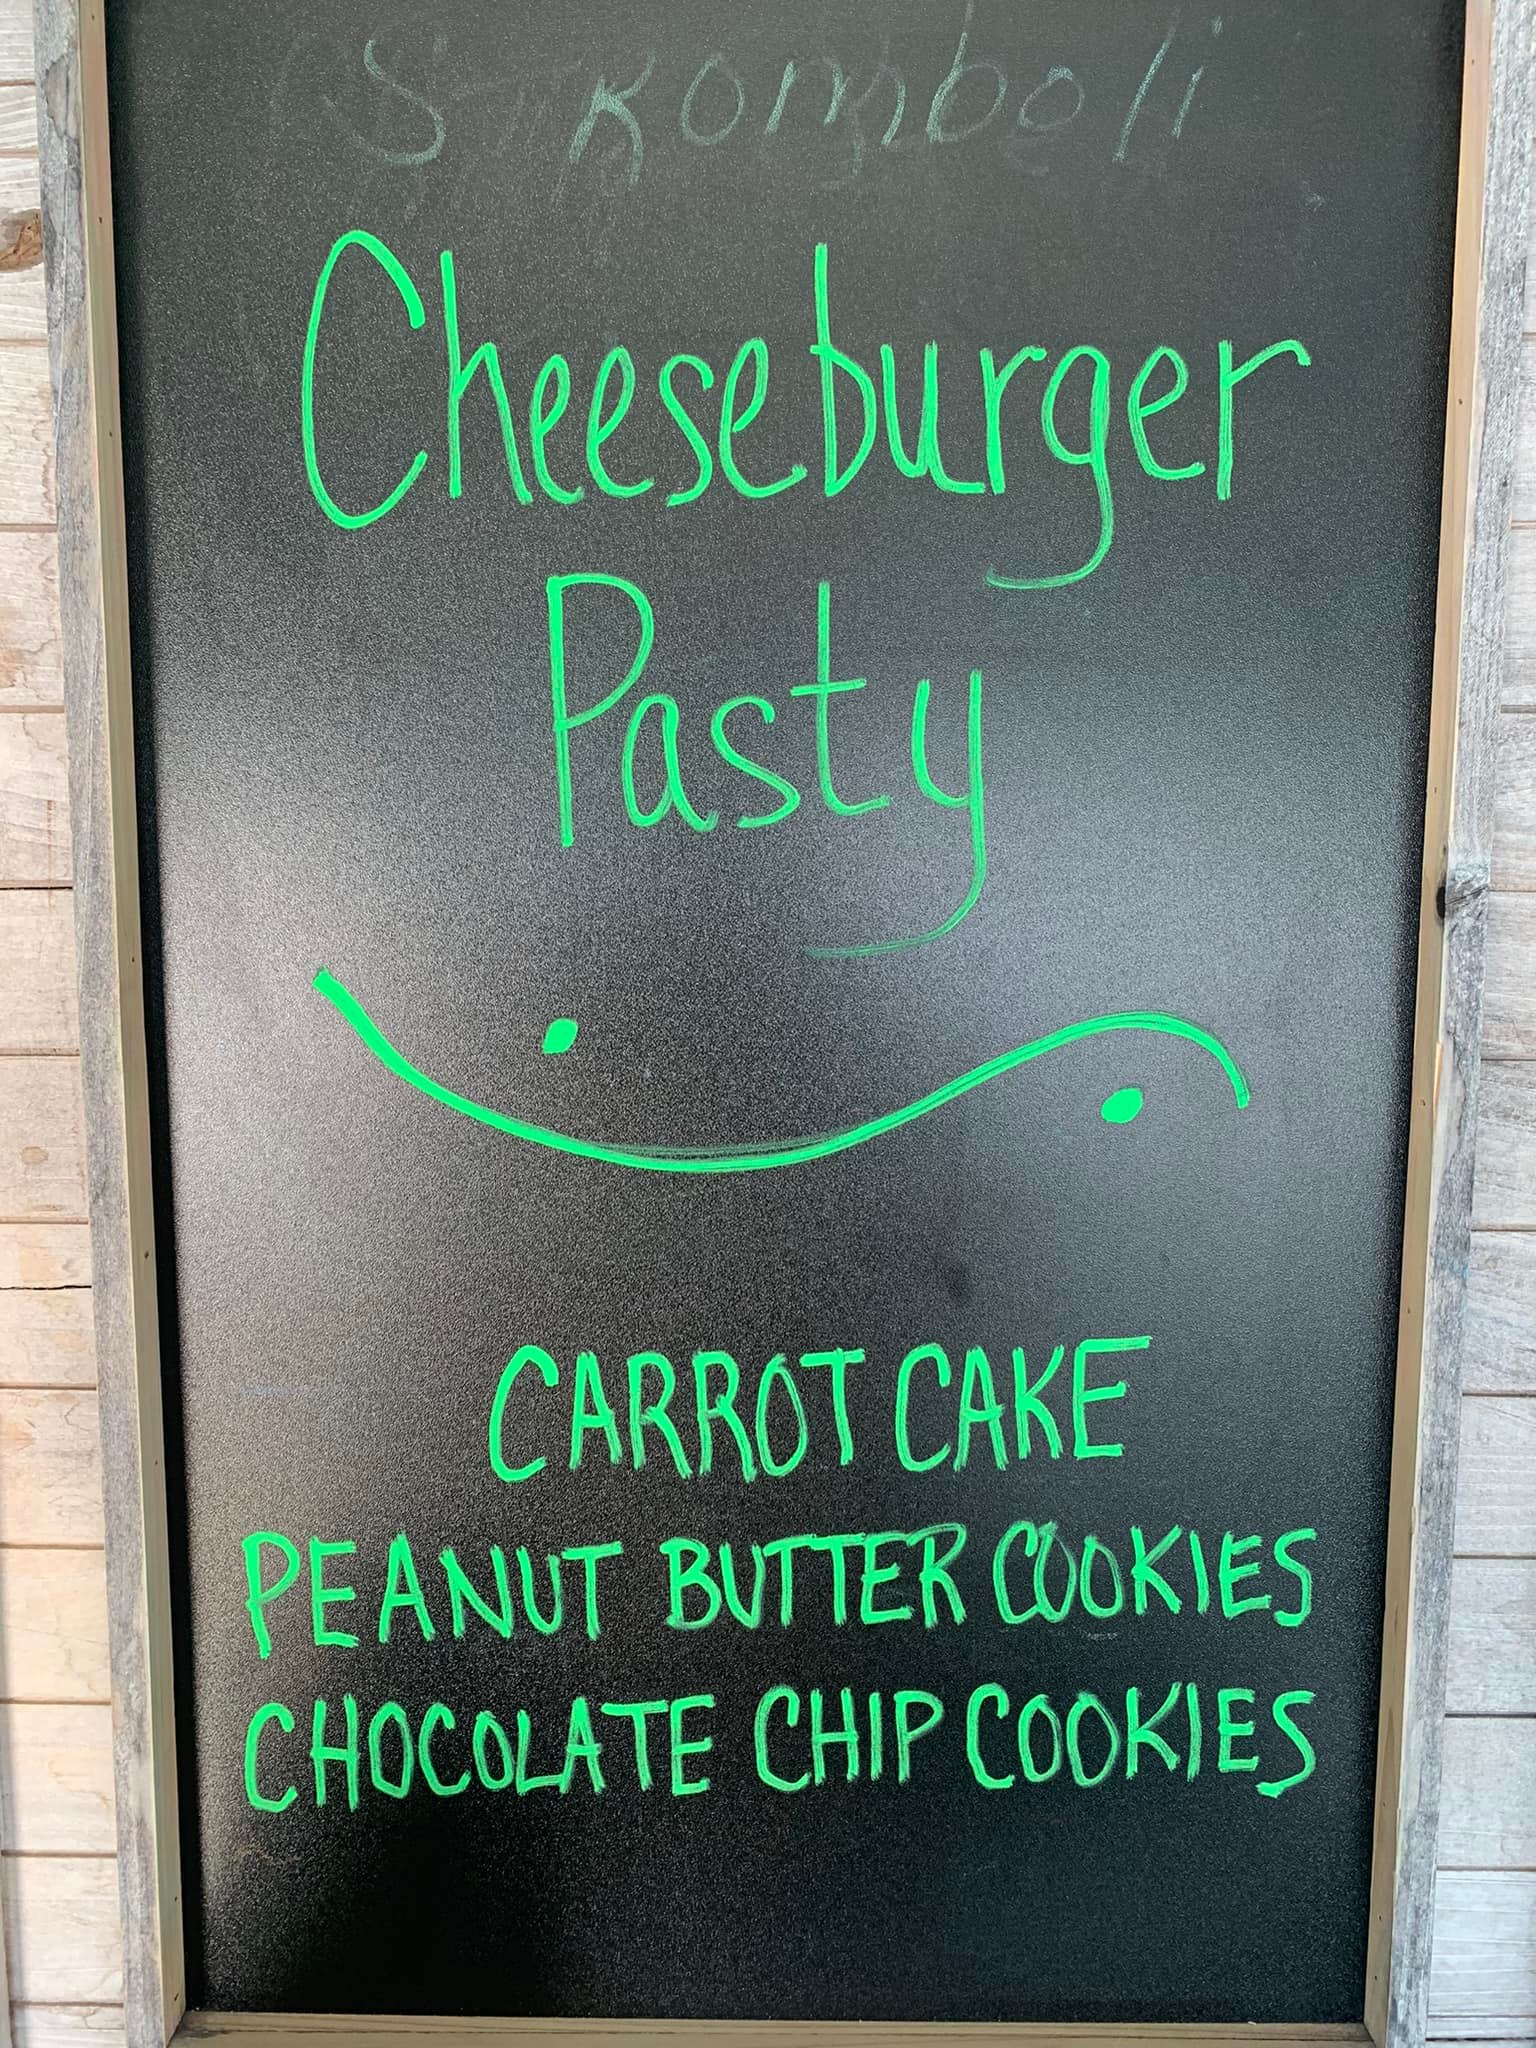 Stromboli
Cheeseburger
Pasty
CARROT CAKE
PEANUT BUTTER COOKIES
CHOCOLATE CHIP COOKIES